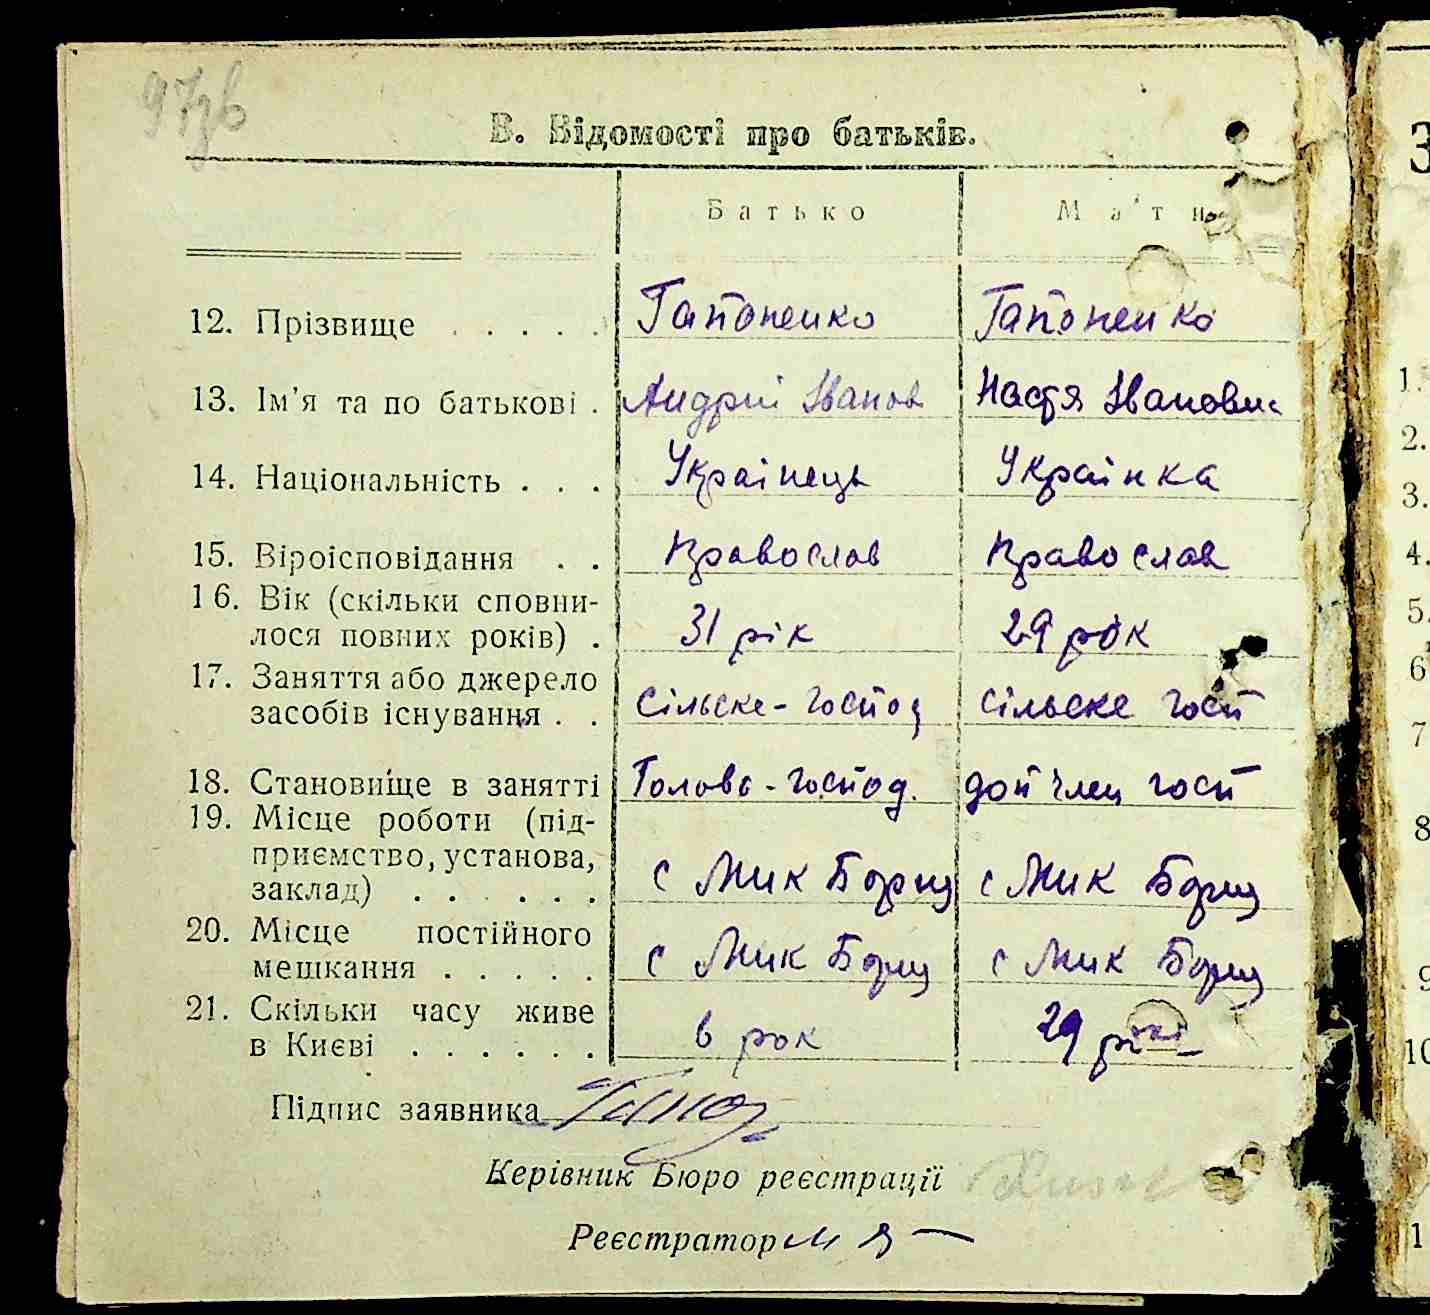 97зв
В. Відомості про батьків.
Батько Мати
12. Прізвище . . . . . Гапоненко Гапоненко
13. Ім’я та по батькові . Андрій Іванов Настя Івановна
14. Національність . . . Українець Українка
15. Віроісповідання . . Православ Православ
16. Вік (скільки сповни-
лося повних років) . 31 рік 29 рік
17. Заняття або джерело
засобів існування . . Сільське-господ сільське госп
18. Становище в занятті Голова-господ. доп член госп
19. Місце роботи (під-
приємство, установа,
заклад) . . . . . с Мик Борщ с Мик Борщ
20. Місце постійного
мешкання . . . . . с Мик Борщ с Мик Борщ
21. Скільки часу живе
в Києві . . . . . . 6 рок 29 рокі
Підпис заявника Гапон
Керівник Бюро реєстрації
Реєстратор
3
1.
2.
3.
4.
5.
6
7
8
9
10
1